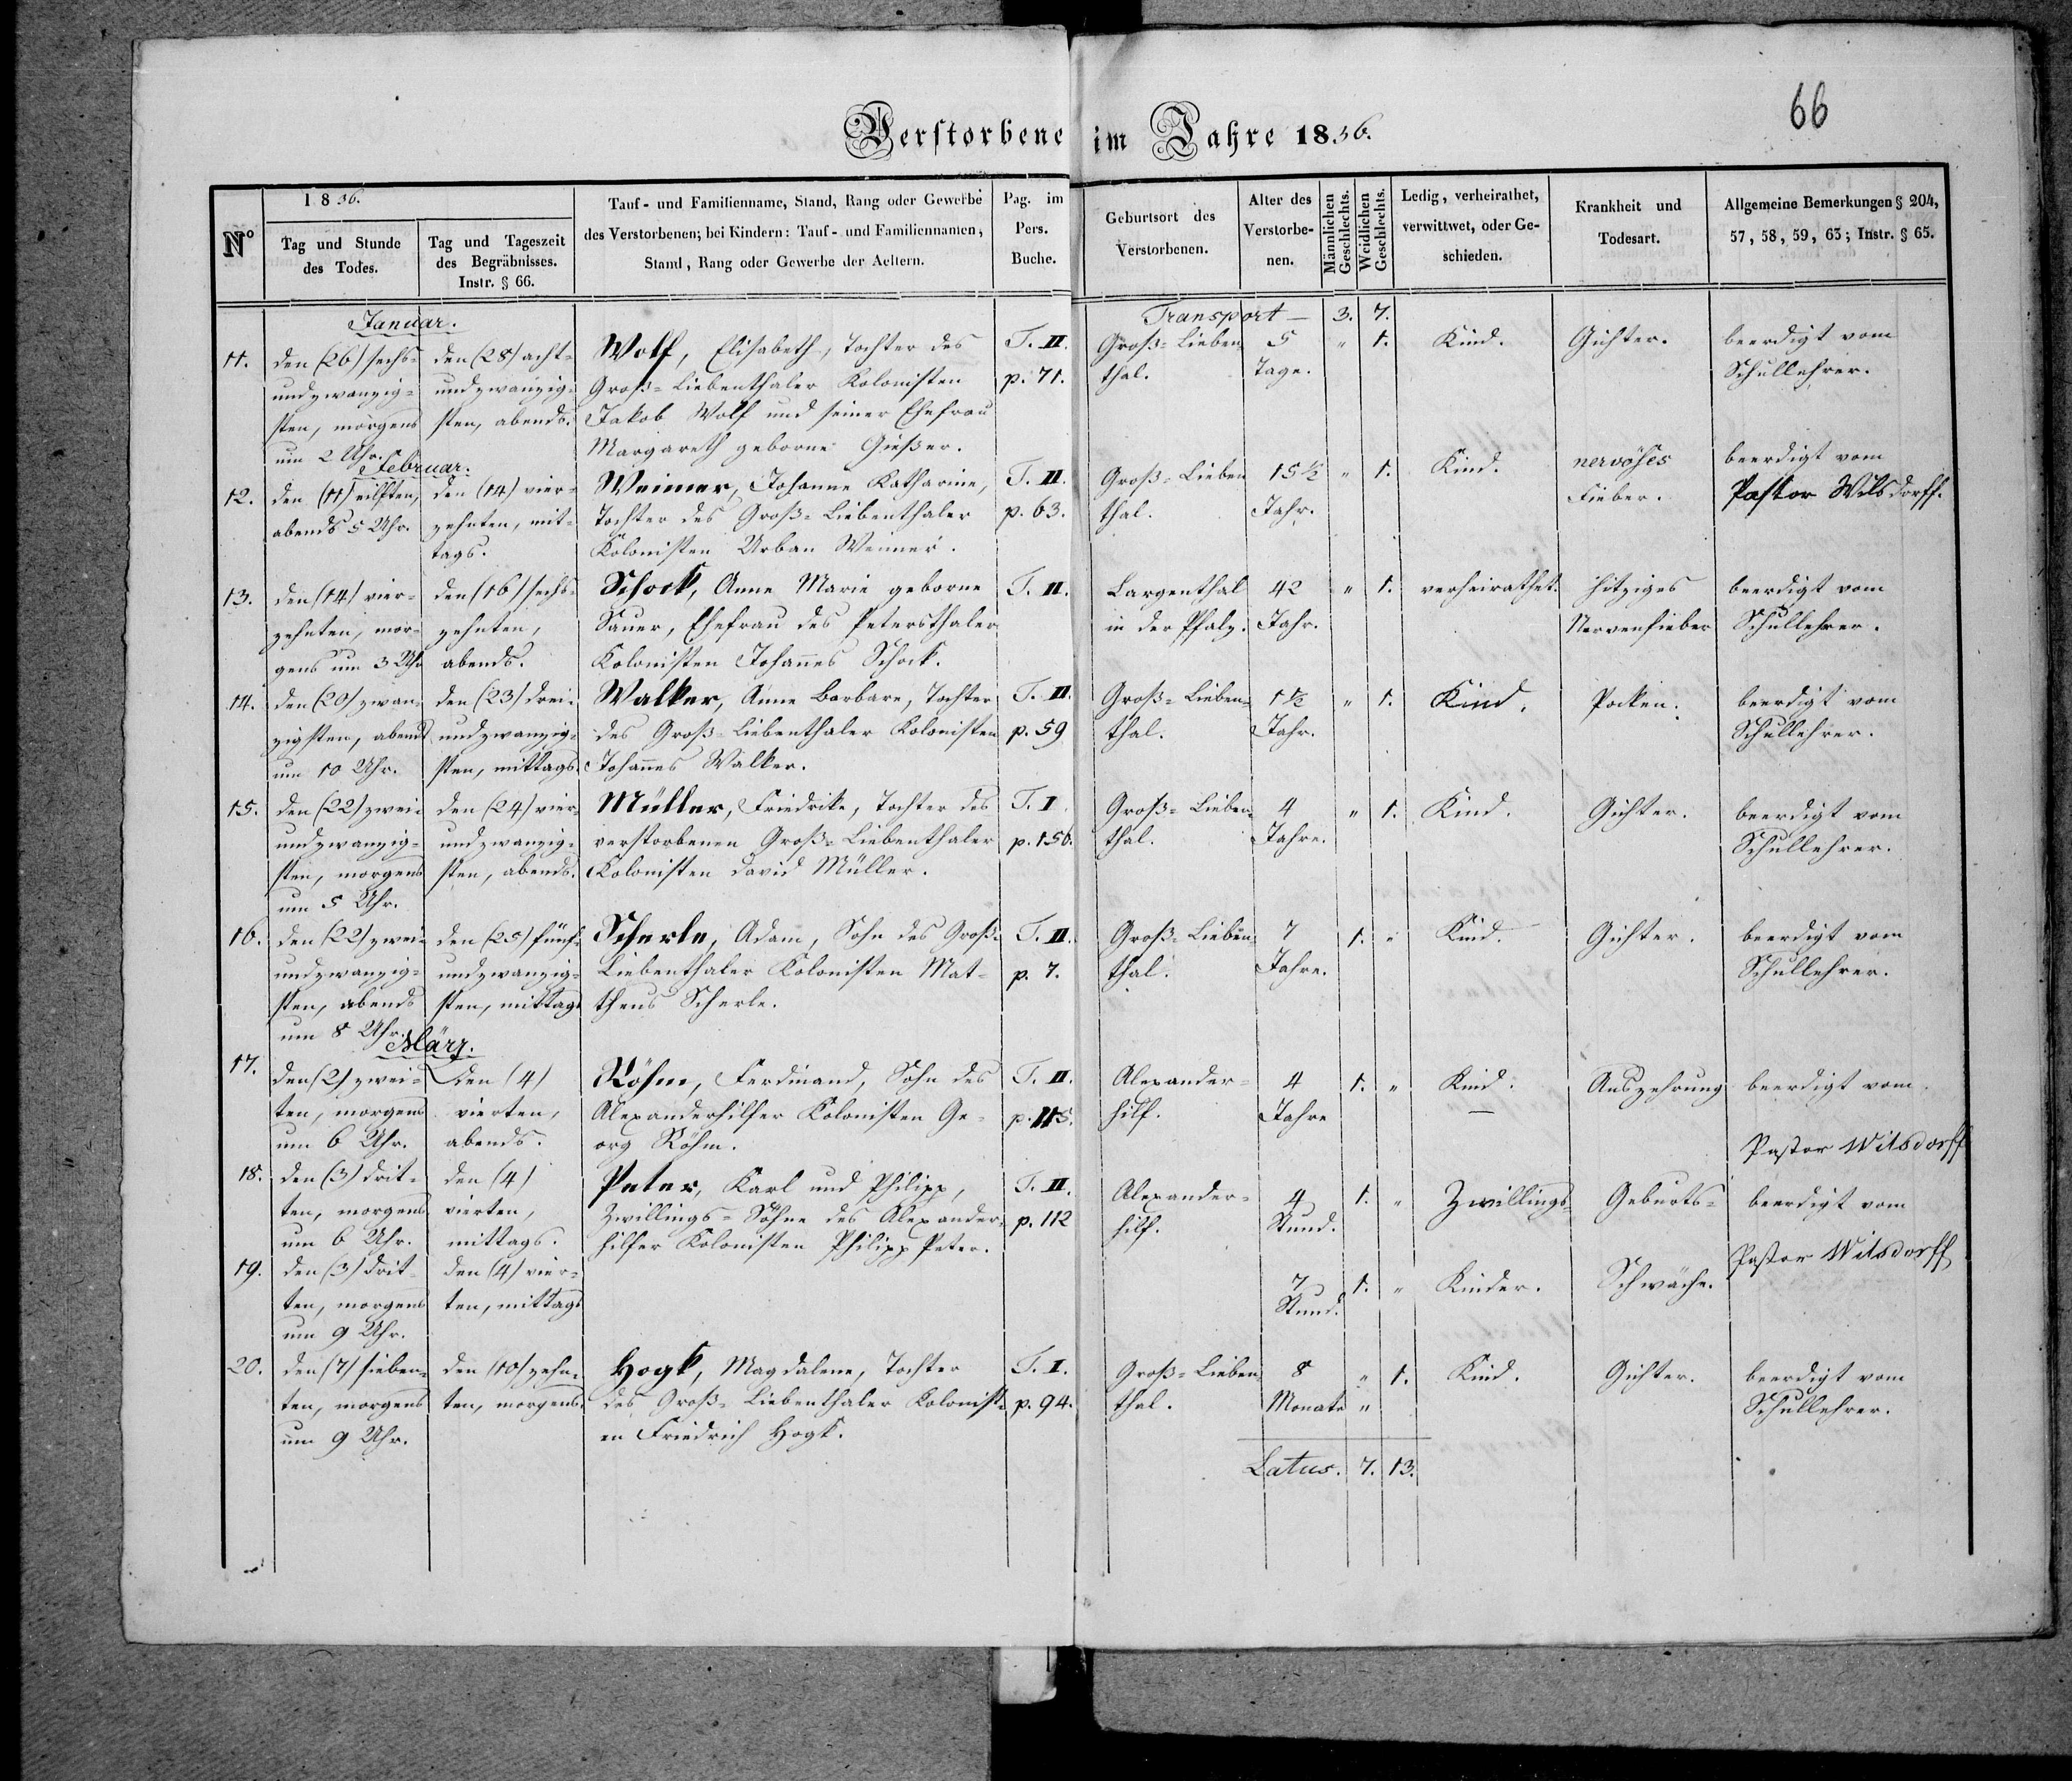 66
Verstorbene im Jahre 1836.
No
1836.
Tag und Stunde
des Todes.
Tag und Tageszeit
des Begräbnisses.
Instr. § 66.
Tauf- und Familienname, Stand, Rang oder Gewerbe
des Verstorbenen; bei Kindern: Tauf- und Familiennamen,
Stand, Rang oder Gewerbe der Aeltern.
Pag. im
Pers.
Buche.
Geburtsort des
Verstorbenen.
Alter des
Verstorbe-
nen.
Männlichen
Geschlechts.
Weiblichen
Geschlechts.
Ledig, verheirathet,
verwittwet, oder Ge-
schieden.
Krankheit und
Todesart.
Allgemeine Bemerkungen § 204,
57, 58, 59, 63; Instr. § 65.
Januar.
Transport — 3. 7.
11.
den (26) sechs-
und zwanzig-
sten, morgens
um 2 Uhr.
den (28) acht-
und zwanzig-
sten, abends.
Wolf, Elisabeth, Tochter des
Groß-Liebenthaler Kolonisten
Jakob Wolf und seiner Ehefrau
Margareth geborne Gießer.
T. II.
p. 71.
Groß-Lieben-
thal.
5
Tage.
" 1.
Kind.
Gichter.
beerdigt vom
Schullehrer.
Februar.
12.
den (11) eilften,
abends 5 Uhr.
den (14) vier-
zehnten, mit-
tags.
Weimer, Johanne Katharine,
Tochter des Groß-Liebenthaler
Kolonisten Urban Weimer.
T. II.
p. 63.
Groß-Lieben
thal.
15 1/2
Jahr.
" 1.
Kind.
nervöses
Fieber.
beerdigt vom
Pastor Wilsdorff.
13.
den (14) vier-
zehnten, mor-
gens um 3 Uhr
den (16) sechs-
zehnten,
abends.
Schock, Anne Marie geborne
Sauer, Ehefrau des Petersthaler
Kolonisten Johannes Schock.
T. II.
Largenthal
in der Pfalz.
42
Jahr.
" 1.
verheirathet.
hitziges
Nervenfieber
beerdigt vom
Schullehrer.
14.
den (20) zwan-
zigsten, abends
um 10 Uhr.
den (23) drei-
und zwanzig-
sten, mittags.
Walker, Anne Barbare, Tochter
des Groß-Liebenthaler Kolonisten
Johannes Walker.
T. II.
p. 59
Groß-Lieben-
thal.
1 1/2
Jahr.
" 1.
Kind.
Pocken.
beerdigt vom
Schullehrer.
15.
den (22) zwei-
und zwanzig-
sten, morgens
um 5 Uhr.
den (24) vier-
und zwanzig-
sten, abends.
Müller, Friedrike, Tochter des
verstorbenen Groß-Liebenthaler
Kolonisten David Müller.
T. I
p. 156.
Groß-Lieben-
thal.
4
Jahre.
" 1.
Kind.
Gichter.
beerdigt vom
Schullehrer.
16.
den (22) zwei-
und zwanzig-
sten, abends
um 8 Uhr.
den (25) fünf-
und zwanzig-
sten, mittags
Scherle, Adam, Sohn des Groß-
Liebenthaler Kolonisten Mat-
theus Scherle.
T. II.
p. 7.
Groß-Lieben-
thal.
7
Jahre.
1. "
Kind.
Gichter.
beerdigt vom
Schullehrer.
März.
17.
den (2) zwei-
ten, morgens
um 6 Uhr.
den (4)
vierten,
abends.
Röhm, Ferdinand, Sohn des
Alexanderhilfer Kolonisten Ge-
org Röhm.
T. II.
p. 115.
Alexander-
hilf.
4
Jahre
1. "
Kind.
Auszehrung
beerdigt vom
Pastor Wilsdorff
18.
den (3) drit-
ten, morgens
um 6 Uhr.
den (4)
vierten,
mittags.
Peter, Karl und Philipp,
Zwillings-Söhne des Alexander-
hilfer Kolonisten Philipp Peter.
T. II.
p. 112
Alexander-
hilf.
4
Stund.
1. "
Zwillings-
Geburts-
beerdigt vom
Pastor Wilsdorff
19.
den (3) drit-
ten, morgens
um 9 Uhr.
den (4) vier-
ten, mittags
7
Stund.
1. "
Kinder.
Schwäche.
20.
den (7) sieben-
ten, morgens
um 9 Uhr.
den (10) zehn-
ten, morgens.
Hogk, Magdalene, Tochter
des Groß-Liebenthaler Kolonist-
en Friedrich Hogk.
T. I.
p. 94.
Groß-Lieben-
thal.
8
Monate "
" 1.
Kind.
Gichter.
beerdigt vom
Schullehrer.
Latus. 7. 13.